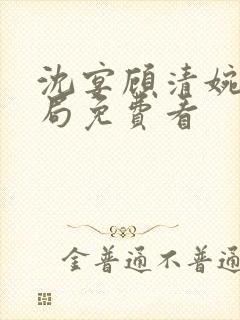 沈宴顾清婉
局免費看
金普通不普通